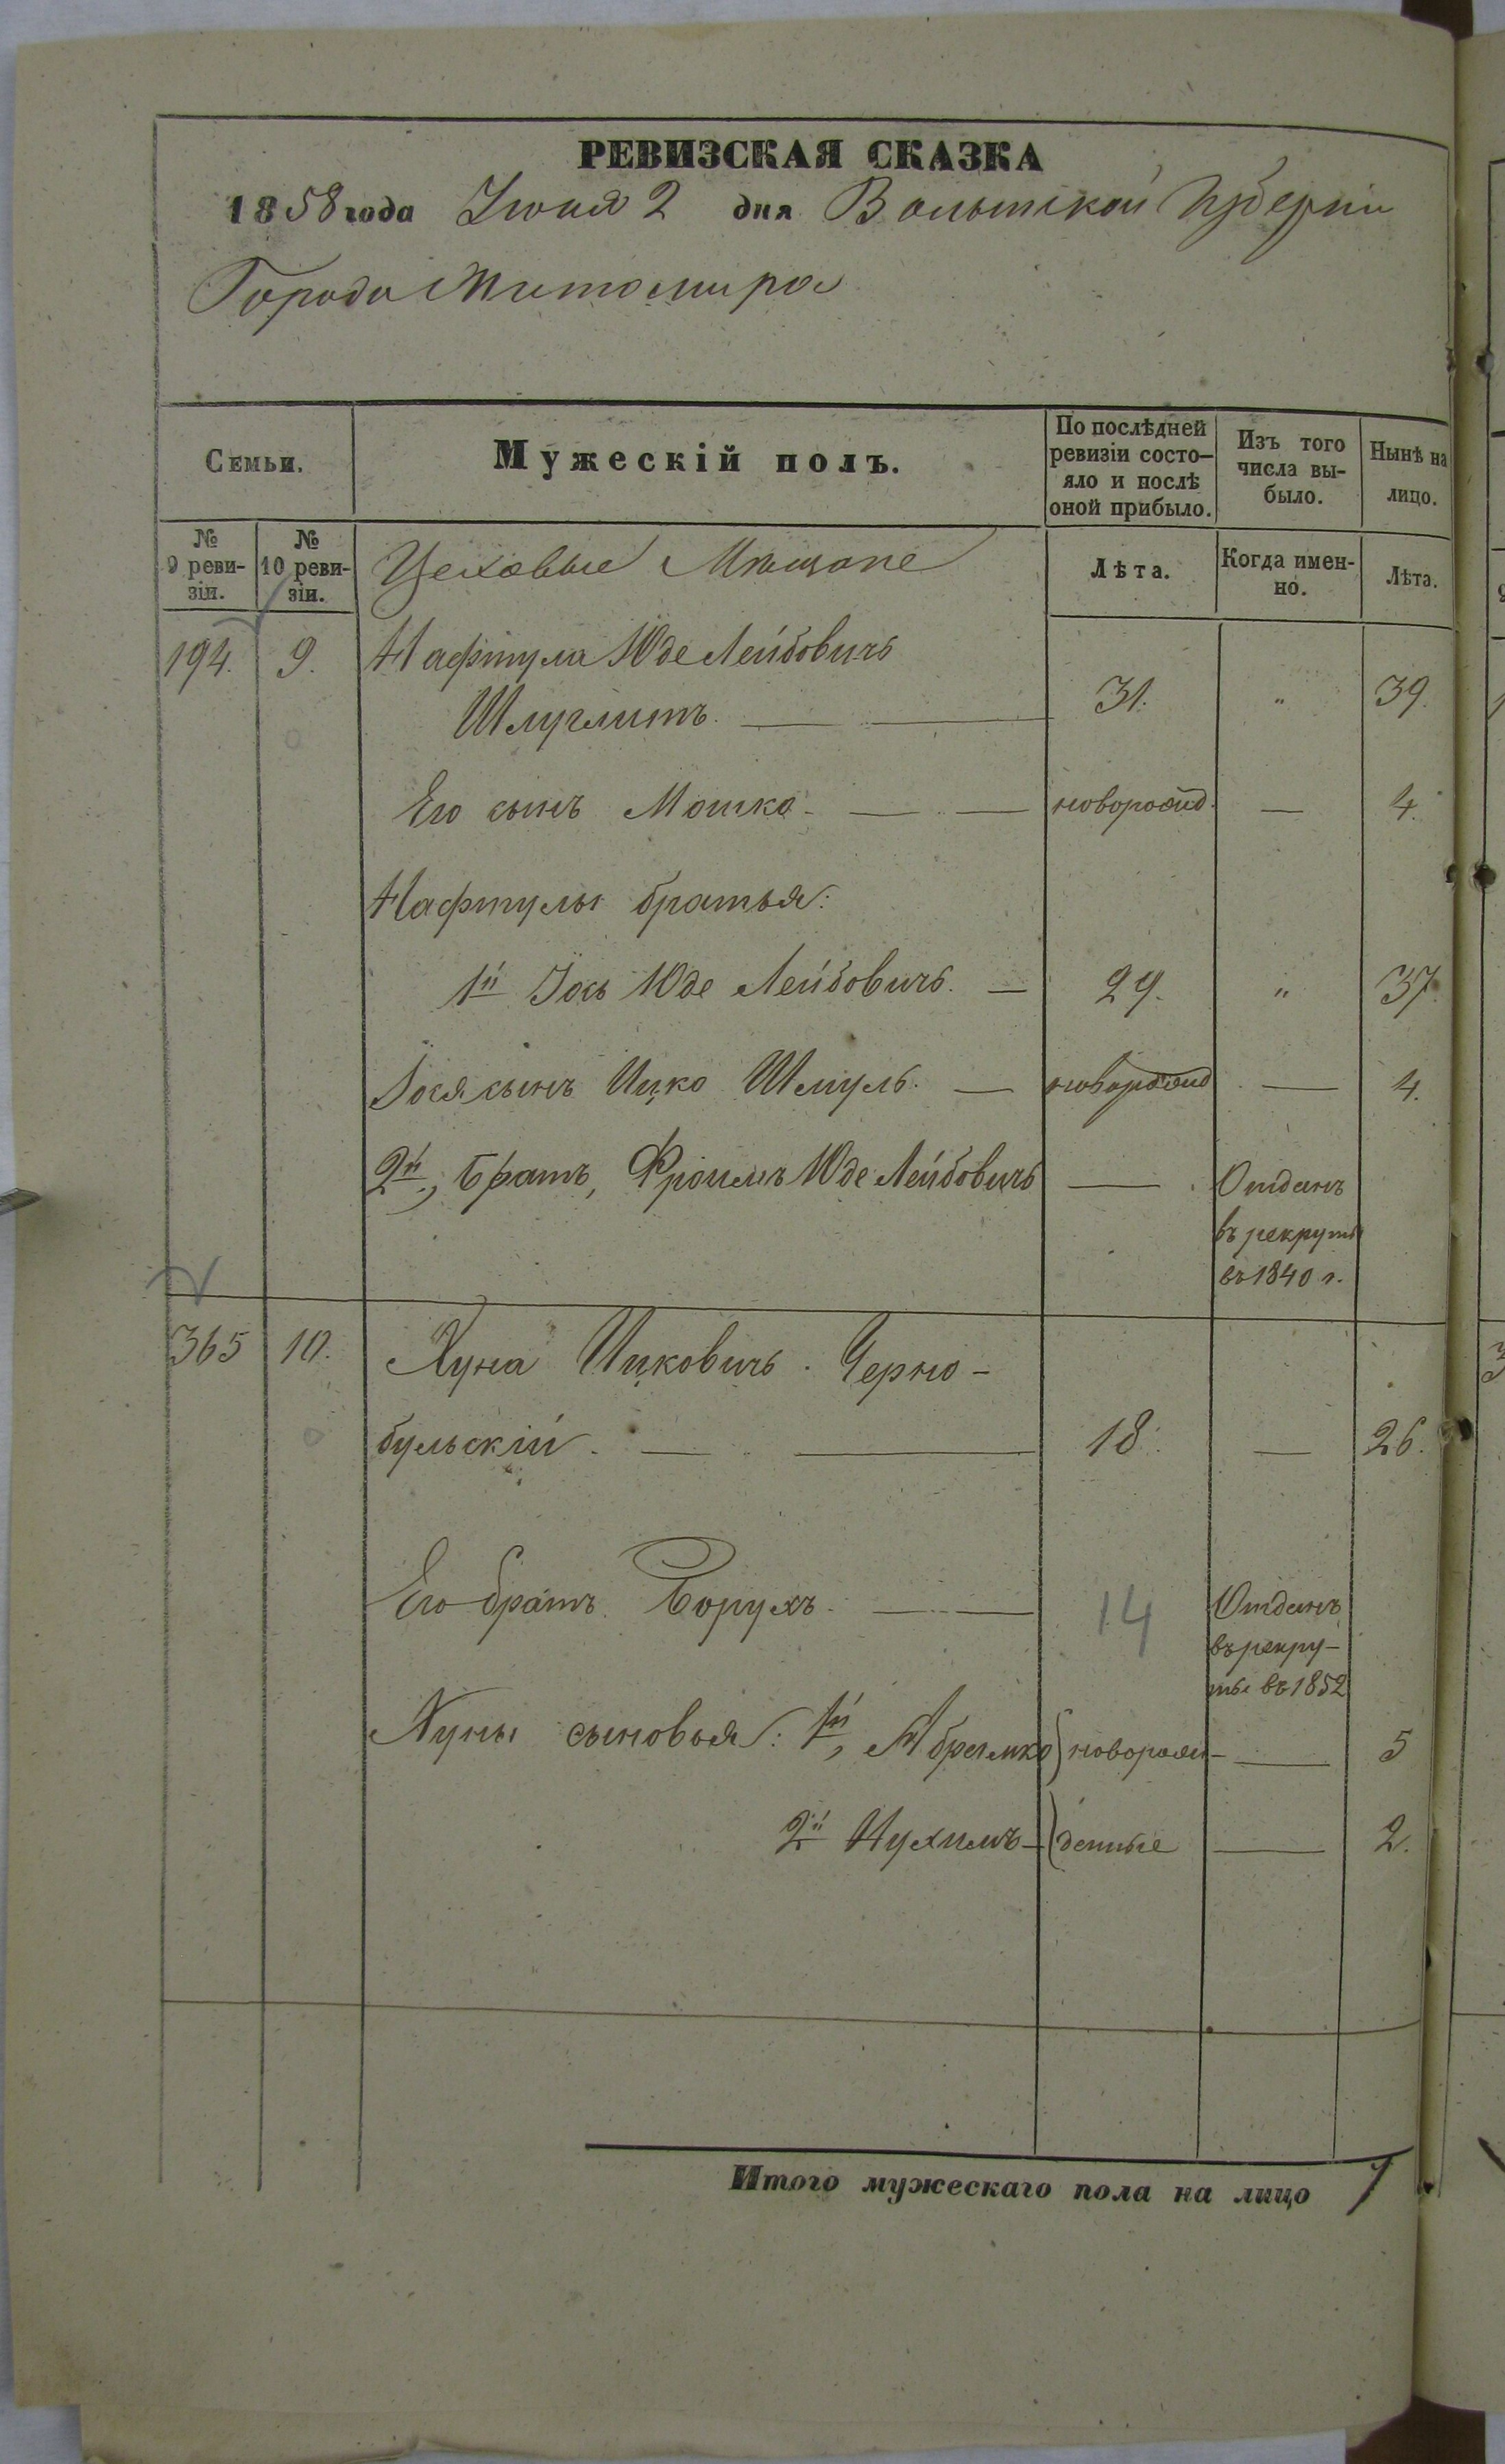 РЕВИЗСКАЯ СКАЗКА
1858 года Іюня 2 дня Волынской Губерніи
Города Житомира
Семьи.
Мужескій полъ.
По послѣдней ревизіи состо-
яло и послѣ
оной прибыло.
Изъ того
числа вы-
было.
Нынѣ на
лицо.
№
9 реви-
зіи.
№
10 реви-
зіи.
Цеховые Мѣщане
Лѣта.
Когда имен-
но.
Лѣта.
194. 9. Нафтула Юде Лейбовичъ
31. " 39.
Его сынъ Мошко - новорожд. — 4.
Нафтулы братья:
1й Іось Юде Лейбовичъ. — 29. " 37.
Іося сынъ Ицко Шмуль. — новорожд — 4.
2й, Братъ, Фроимъ Юде Лейбовичъ — Отданъ
въ рекруты
въ 1840 г.
365 10. Хуна Ицковичъ Черно-
бульскій. — 18. — 26.
Его братъ Борухъ. — 14 Отданъ
въ рекру-
ты въ 1852
Хуны сыновья: 1й, Абрамко новорож- — 5
2й Нухимъ — денные — 2.
Итого мужескаго пола на лицо 7